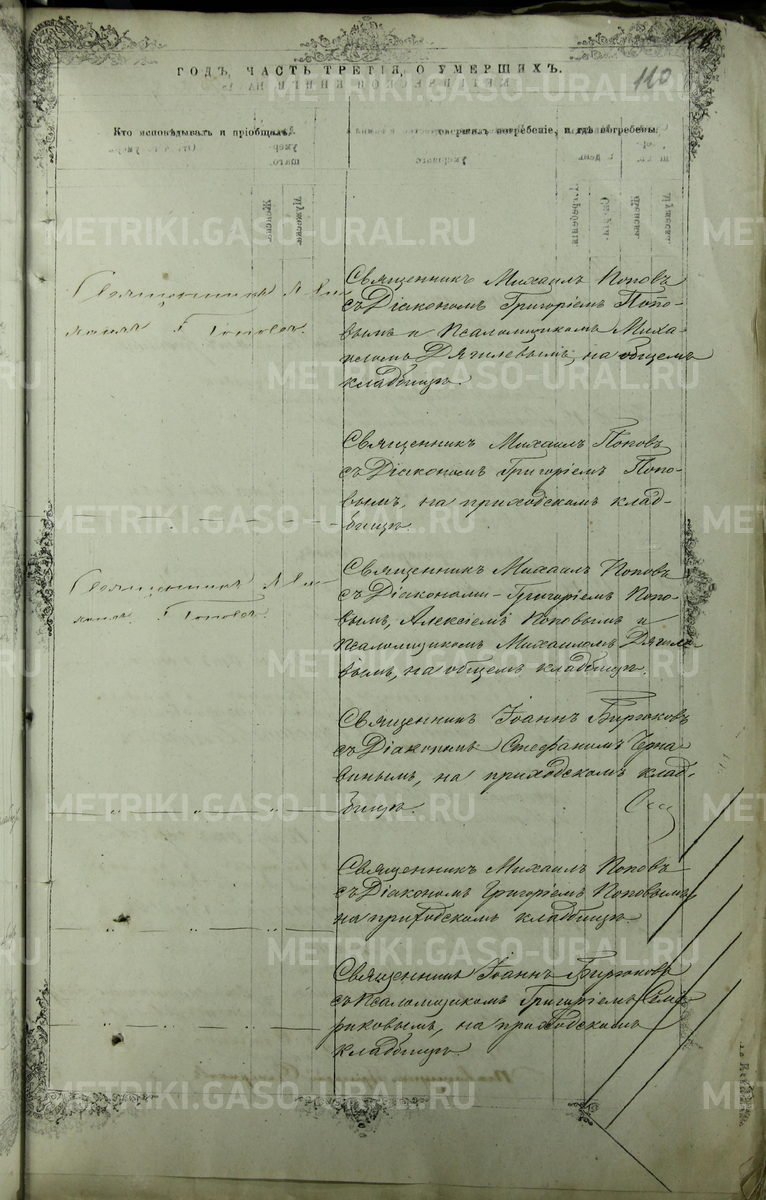 ГОДЪ, ЧАСТЬ ТРЕТІЯ, О УМЕРШИХЪ.
110
Кто исповѣдывалъ и пріобщалъ.
совершилъ погребеніе, и гдѣ погребены.
Священникъ Михаилъ Поповъ.
Священникъ Михаилъ Поповъ
съ Діакономъ Григоріемъ Попо-
вымъ и Псаломщикомъ Миха-
иломъ Дягилевымъ, на общемъ
кладбищѣ.
Священникъ Михаилъ Поповъ
съ Діакономъ Григоріемъ Попо-
вымъ, на приходскомъ клад-
бищѣ.
Священникъ
Поповъ.
Священникъ Михаилъ Поповъ
съ Діаконами Григоріемъ Попо-
вымъ, Алексіемъ Поповымъ и
Псаломщикомъ Михаиломъ Дягиле-
вымъ, на общемъ кладбищѣ.
Священникъ Іоаннъ Бирюковъ
съ Діакономъ Стефаномъ Черна-
виным, на приходскомъ клад-
бищѣ.
Священникъ Михаилъ Поповъ
съ Діакономъ Григоріемъ Поповымъ
на приходскомъ кладбищѣ
Священникъ Іоаннъ Бирюковъ
съ Псаломщикомъ Григоріемъ Семе-
риковымъ, на приходскомъ
кладбищѣ
METRIKI.GASO-URAL.RU